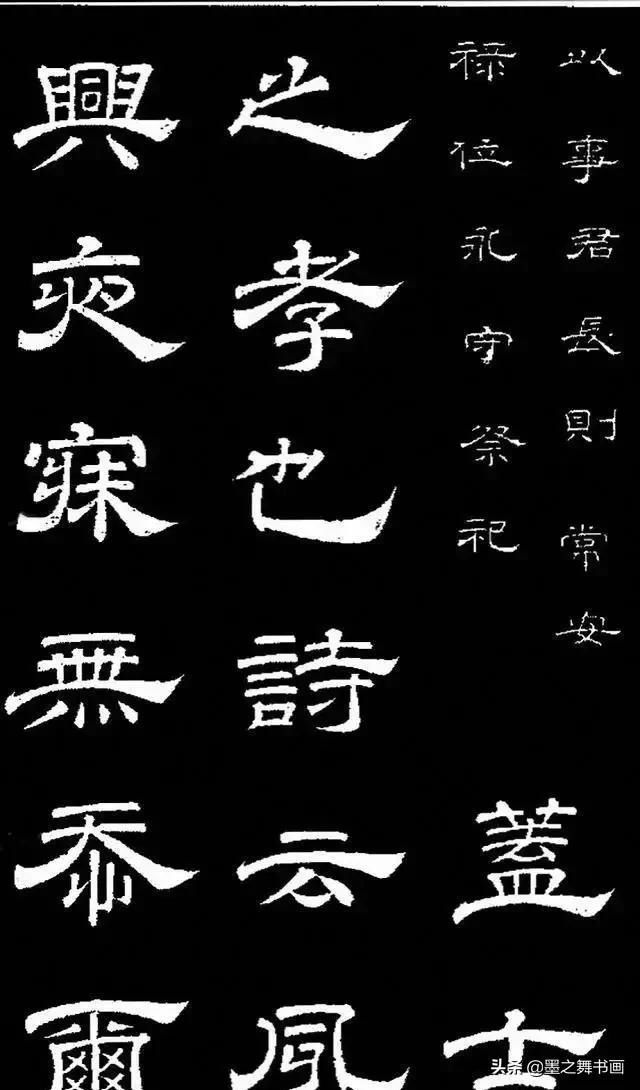 以事君長則常安
禄位永守祭祀
蓋士
之孝也詩云夙
興夜寐無忝爾
头条 @墨之舞书画